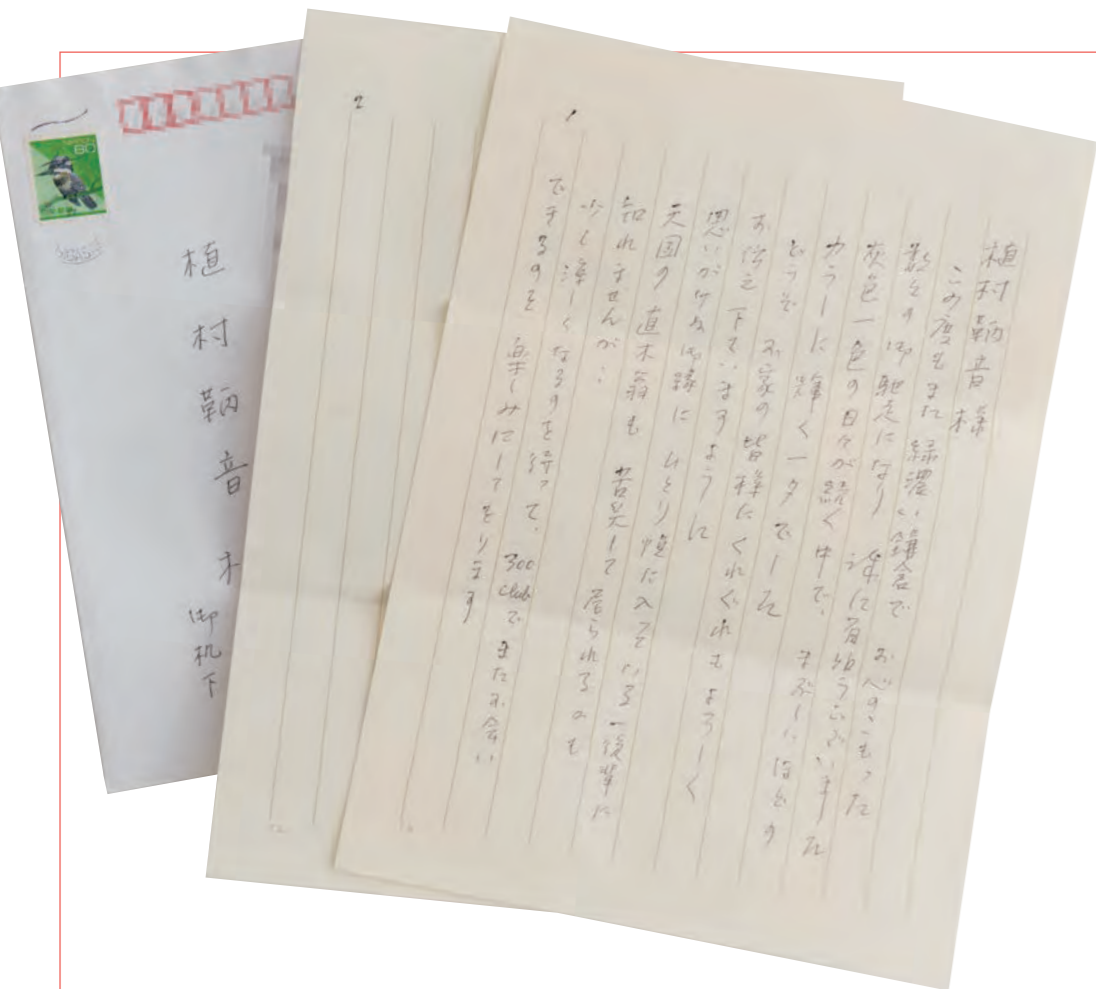 NIPPON
80
植村鞆音様
御机下
2
1
植村鞆音様
この度もまた 緑濃い鎌倉で お心のこもった
数々の御馳走になり 誠に有難うございました
灰色一色の日々が続く中で、まぶしいほどの
カラーに輝く一夕でした
どうぞ お家の皆様にくれぐれもよろしく
お伝え下さいますように
思いがけぬ御縁に ひとり悦に入っている一後輩に
天国の 直木翁も 苦笑して居られるかも
知れませんが…
少し涼しくなるのを待って、300 clubで またお会い
できるのを 楽しみにしております